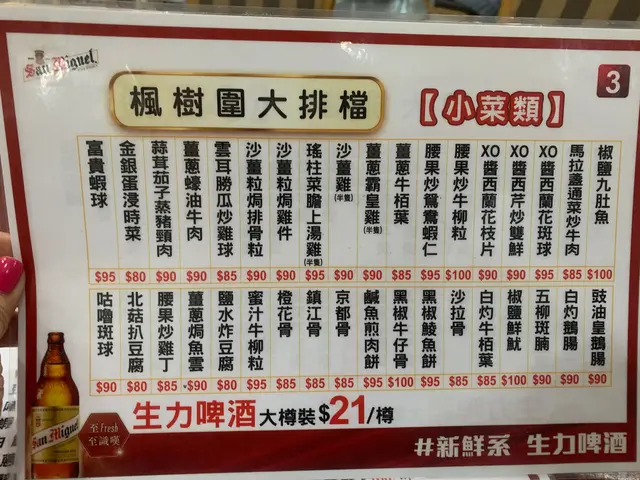 San Miguel
楓樹圍大排檔
【小菜類】
3
椒鹽九肚魚 $100
馬拉盞通菜炒牛肉 $85
XO醬西蘭花班球 $95
XO醬西芹炒雙鮮 $90
XO醬西蘭花枝片 $90
腰果炒牛柳粒 $100
腰果炒鴛鴦蝦仁 $95
薑蔥牛栢葉 $85
薑蔥霸皇雞(半隻) $90
沙薑雞(半隻) $90
瑤柱菜膽上湯雞(半隻) $95
沙薑粒焗雞件 $90
沙薑粒焗排骨粒 $90
雲耳勝瓜炒雞球 $85
薑蔥蠔油牛肉 $90
蒜茸茄子蒸豬頸肉 $90
金銀蛋浸時菜 $80
富貴蝦球 $95
豉油皇鵝腸 $90
白灼鵝腸 $90
五柳斑腩 $90
椒鹽鮮魷 $100
白灼牛栢葉 $85
沙拉骨 $85
黑椒鯪魚餅 $95
黑椒牛仔骨 $100
鹹魚煎肉餅 $95
京都骨 $85
鎮江骨 $85
橙花骨 $85
蜜汁牛柳粒 $95
鹽水炸豆腐 $80
薑蔥焗魚雲 $90
腰果炒雞丁 $85
北菇扒豆腐 $80
咕嚕斑球 $90
生力啤酒 大樽裝 $21/樽
至Fresh
至誠嘆
San Miguel
#新鮮系 生力啤酒